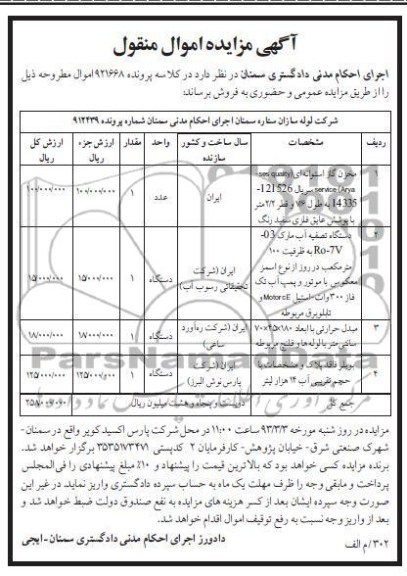 آگهی مزایده اموال منقول
اجرای احکام مدنی دادگستری سمنان در نظر دارد در کلاسه پرونده ۹۲۱۶۶۸ اموال مطروحه ذیل
را از طریق مزایده عمومی و حضوری به فروش برساند:
شرکت لوله سازان ستاره سمنان اجرای احکام مدنی سمنان شماره پرونده ۹۱۲۴۳۹
ردیف مشخصات سال ساخت و کشور سازنده واحد مقدار ارزش جزء ریال ارزش کل ریال
۱ مخزن گاز استوانه‌ای (quality
service (Arya سریال 121526-
14335 به طول ۷۶ و قطر ۲/۲ متر
با پوشش عایق فلزی سفید رنگ
ایران عدد ۱ ۱۰۰/۰۰۰/۰۰۰ ۱۰۰/۰۰۰/۰۰۰
۲ دستگاه تصفیه آب مارک 03-
Ro-7V به ظرفیت ۱۰۰
مترمکعب در روز از نوع اسمز
معکوس با موتور و پمپ آب تک
فاز ۳۰۰ وات استیل Motor.cE و
تابلو برق مربوطه
ایران (شرکت تحقیقاتی رسوب آب) دستگاه ۱ ۱۵/۰۰۰/۰۰۰ ۱۵/۰۰۰/۰۰۰
۳ مبدل حرارتی با ابعاد ۱۸۰×۲۵×۷۰
سانتی متر با لوله ها و فلنج مربوطه
ایران (شرکت ره آورد ساعی) دستگاه ۱ ۱۸/۰۰۰/۰۰۰ ۱۸/۰۰۰/۰۰۰
۴ بویلر فاقد پلاک و مشخصات با
حجم تقریبی آب ۱۴ هزار لیتر
ایران (شرکت پارس نوش البرز) دستگاه ۱ ۱۲۵/۰۰۰/۰۰۰ ۱۲۵/۰۰۰/۰۰۰
جمع کل دویست و پنجاه و هشت میلیون ریال ۲۵۸/۰۰۰/۰۰۰
ParsNamadData
مزایده در روز شنبه مورخه ۹۳/۳/۳ ساعت ۱۱:۰۰ در محل شرکت پارس اکسید کویر واقع در سمنان-
شهرک صنعتی شرق- خیابان پژوهش- کارفرمایان ۲ کدپستی ۳۵۳۵۱۷۳۴۷۱ برگزار خواهد شد.
برنده مزایده کسی خواهد بود که بالاترین قیمت را پیشنهاد و ۱۰٪ مبلغ پیشنهادی را فی‌المجلس
پرداخت و مابقی وجه را ظرف مهلت یک ماه به حساب سپرده دادگستری واریز نماید. در غیر این
صورت وجه سپرده ایشان بعد از کسر هزینه های مزایده به نفع صندوق دولت ضبط خواهد شد و
بعد از واریز وجه نسبت به رفع توقیف اموال اقدام خواهد شد.
دادورز اجرای احکام مدنی دادگستری سمنان- ایجی
۳۰۲/م الف